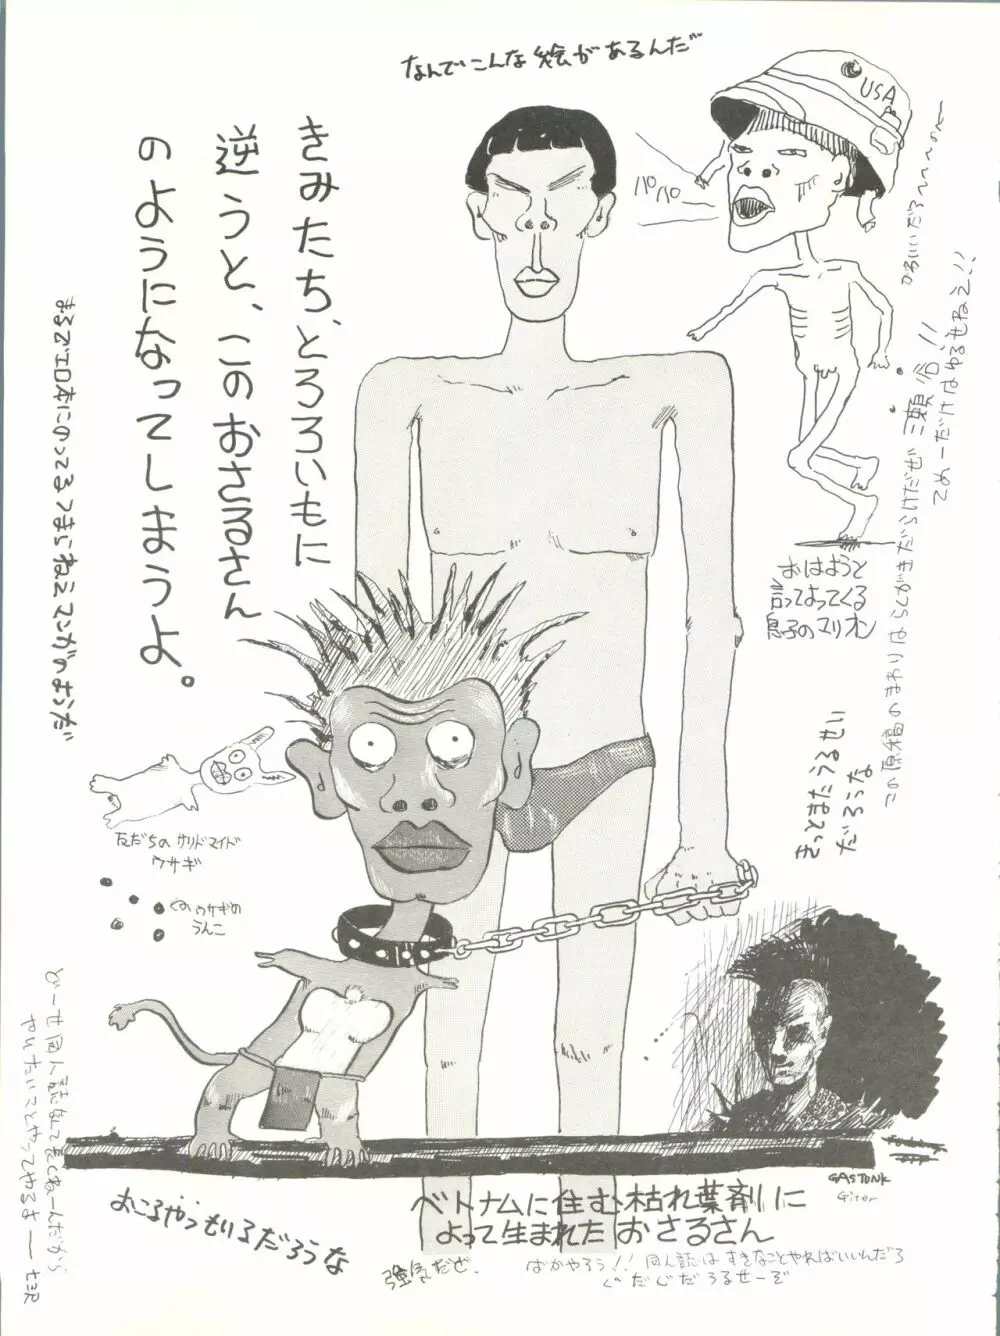 なんでこんな絵があるんだ
USA
パパパ
きみたち、とろろいもに
逆うと、このおさるさん
のようになってしまうよ。
まるでエロ本にのってるつまらねえマンガのようだ
かわいいだろへへへ
てめーだけはゆるせねえ!!
この原稿のまわりはらくがきだらけだぜ 三瀬 !!
おはようと
言ってよってくる
息子のマリオン
きっとまたうるせい
だろうな
友だちの サリドマイド
ウサギ
そのウサギの
うんこ
どーせ同人誌なんてさくねーんだから
やりたいことやってやるさ ——
GASTUNK
Giter
おこるやつもいるだろうな
ベトナムに住む枯れ葉剤に
よって生まれた おさるさん
強気だぜ.
ばかやろう!! 同人誌は すきなことやればいいんだろ
ぐだぐだうるせーぞ